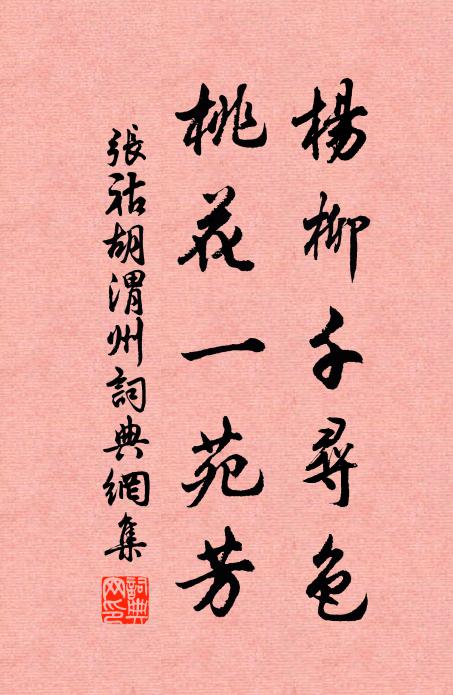 楊柳千尋色
桃花一苑芳
張祜胡渭州詞典網集
詞典網印